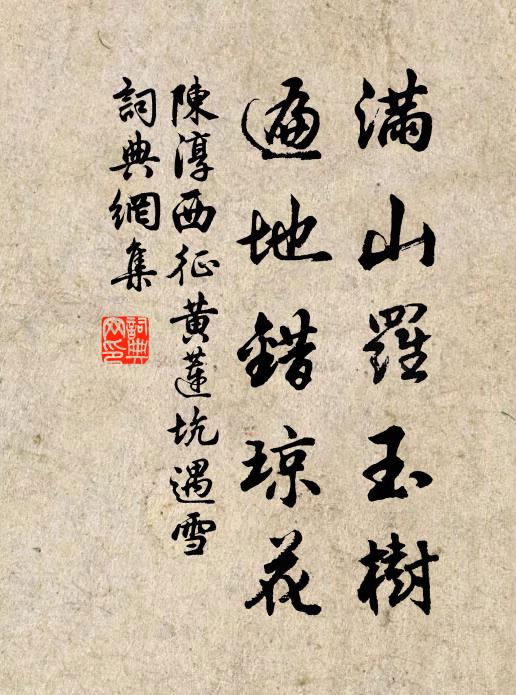 滿山羅玉樹
遍地錯琼花
陳淳西征黄蓮坑遇雪
詞典網集
詞典
网印